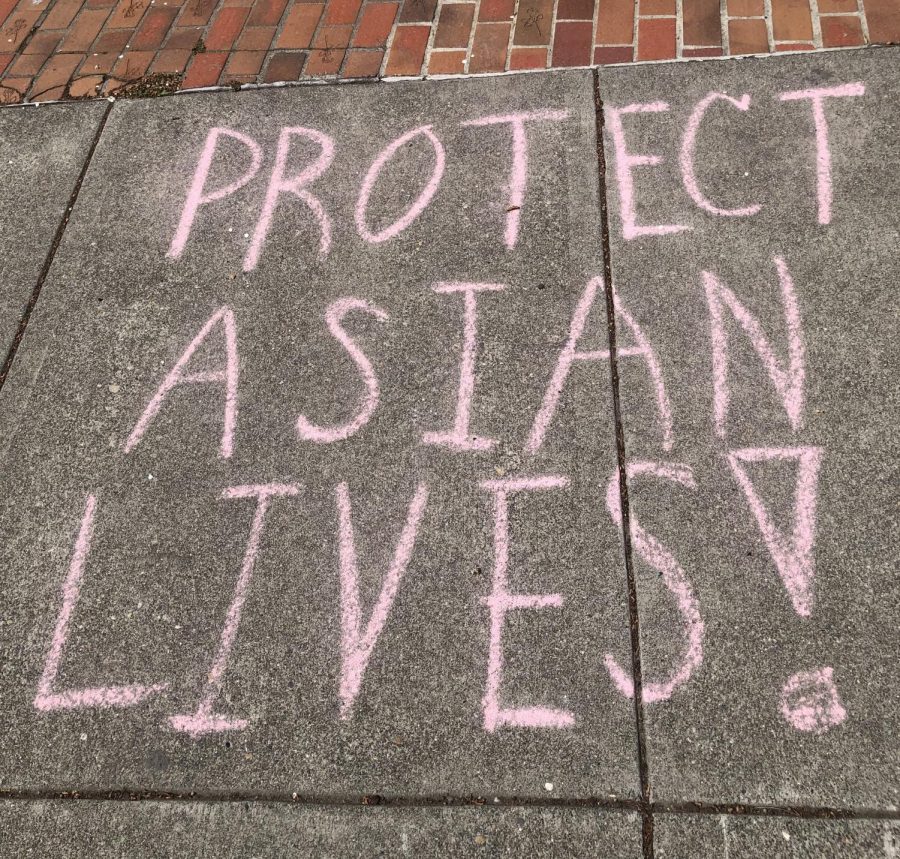 PROTECT
ASIAN
LIVES!